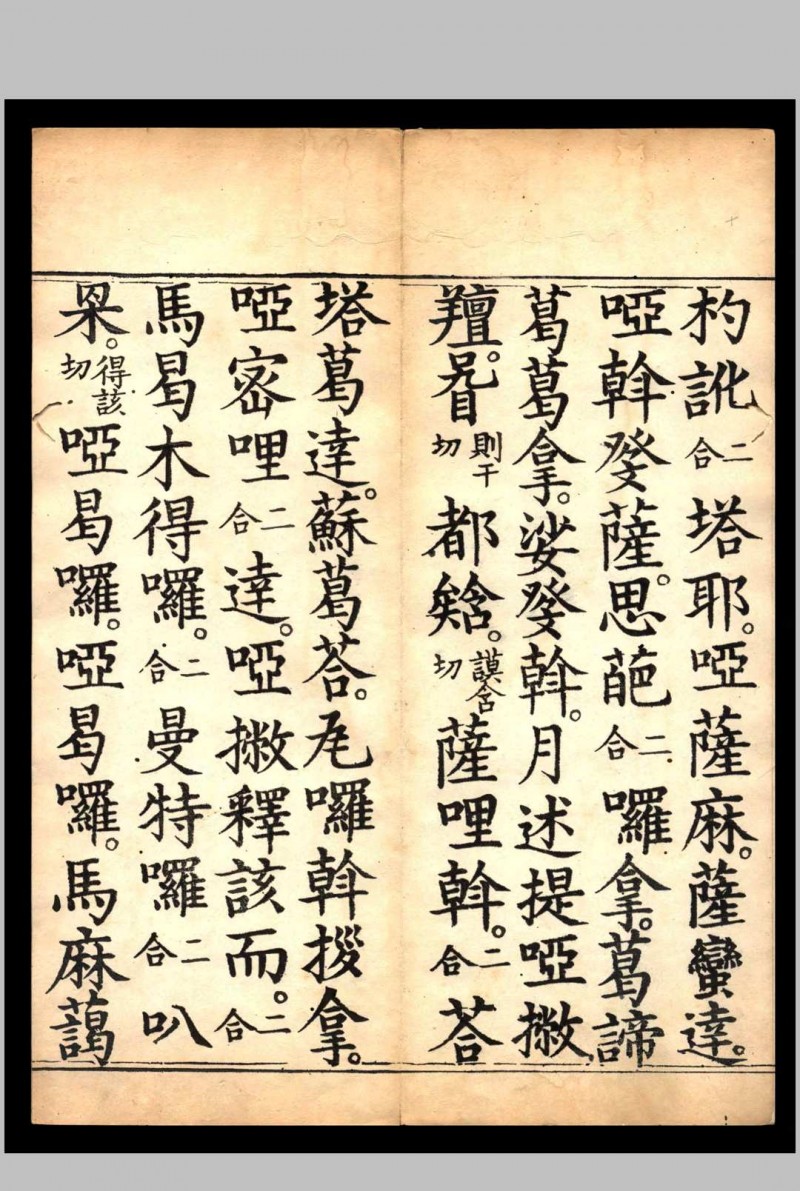 杓訛二合塔耶。啞薩麻。薩蠻達。
啞斡癹薩。思葩二合囉拿。葛諦
葛葛拿。娑癹斡。月述提啞撇
羶。昝則干切都䤴。謨含切薩哩斡。二合荅
塔葛達。蘇葛荅。斡囉斡拶拿。
啞密哩二合達。啞撇釋該而。二合
馬曷木得囉。二合曼特囉二合叭
杲。得該切啞曷囉。啞曷囉。馬麻藹